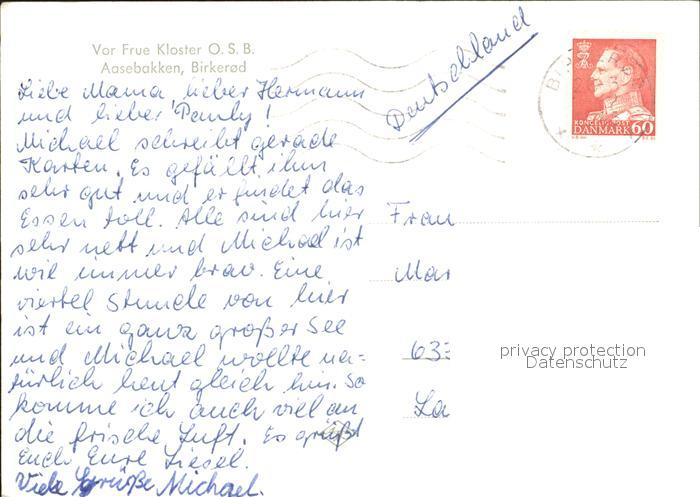 Vor Frue Kloster O. S. B.
Aasebakken, Birkerød
Liebe Mama lieber Hermann
und lieber Pauly!
Michael schreibt gerade
Karten. Es gefällt ihm
sehr gut und er findet das
Essen toll. Alle sind hier
sehr nett und Michael ist
wie immer brav. Eine
viertel Stunde von hier
ist ein ganz großer See
und Michael wollte na=
türlich heut gleich hin. So
komme ich auch viel an
die frische Luft. Es grüßt
Euch Eure Liesel.
Viele Grüße Michael.
Deutschland
KONGELIG POST
DANMARK 60
Frau
Mar
633
La
privacy protection
Datenschutz